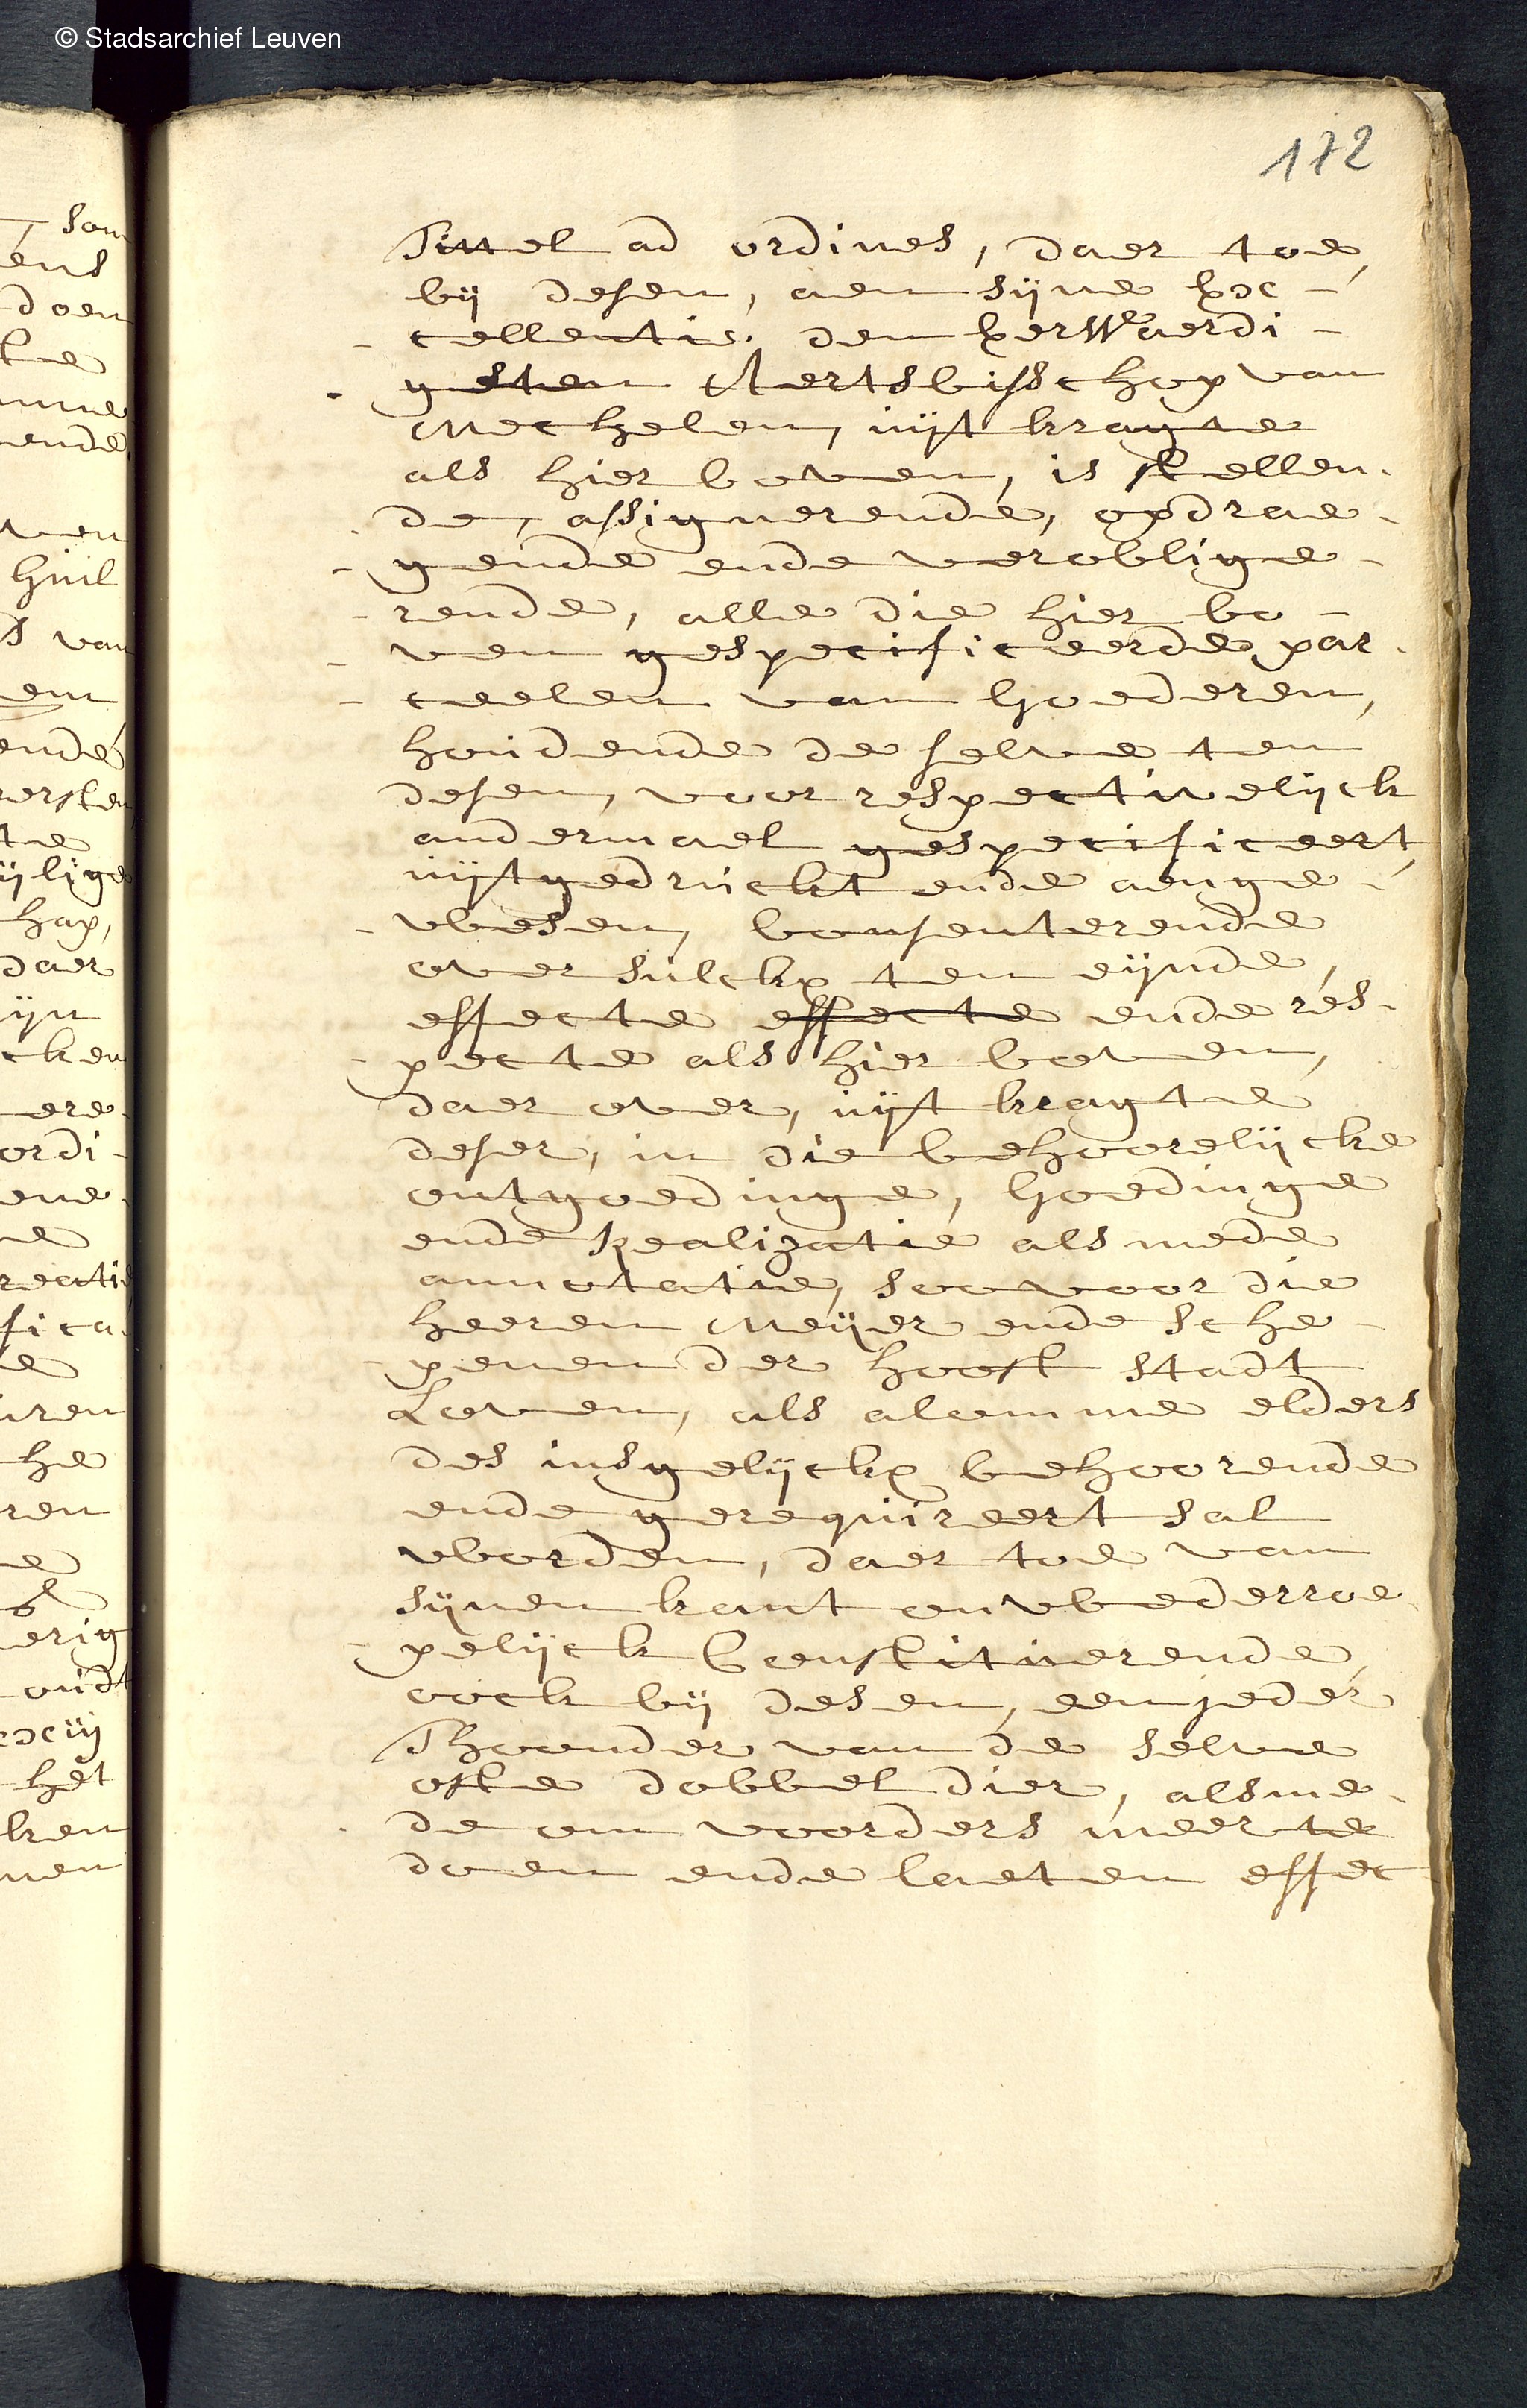 © Stadsarchief Leuven
172
Tittel ad ordines, daer toe,
bij desen, aen sijne Exc-
-cellentie den Eerweerdi-
-gsten Aertsbisschop van
Mechelen, uijt kragte
als hier boven, is stellen-
-de, assignerende, opdrae-
-gende ende veroblige-
-rende, alle die hier bo-
-ven gespecificeerde par-
-ceelen van Goederen,
houdende de selve ten
desen, voor respectivelijck
andermael gespecificeert,
uijtgedruckt ende aenge-
-wesen, Consenterende
over sulckx ten eijnde,
effecte effecte ende res-
-pecte als hier boven,
daer over, uijt kragte
deser, in die behoorelijcke
ontgoedinge, Goedinge
ende Realizatie als mede
annotatie, soo voor die
heeren Meijer ende Sche-
-penen der hooft stadt
Loven, als alomme elders
des insgelijckx behoorende
ende gerequireert sal
worden, daer toe van
sijnen kant onwederroe-
-pelijck Constituerende
oock bij desen, een jeder
Thoonder van de selve
ofte dobbel dier, als me-
-de om voorders meer te
doen ende laeten effec